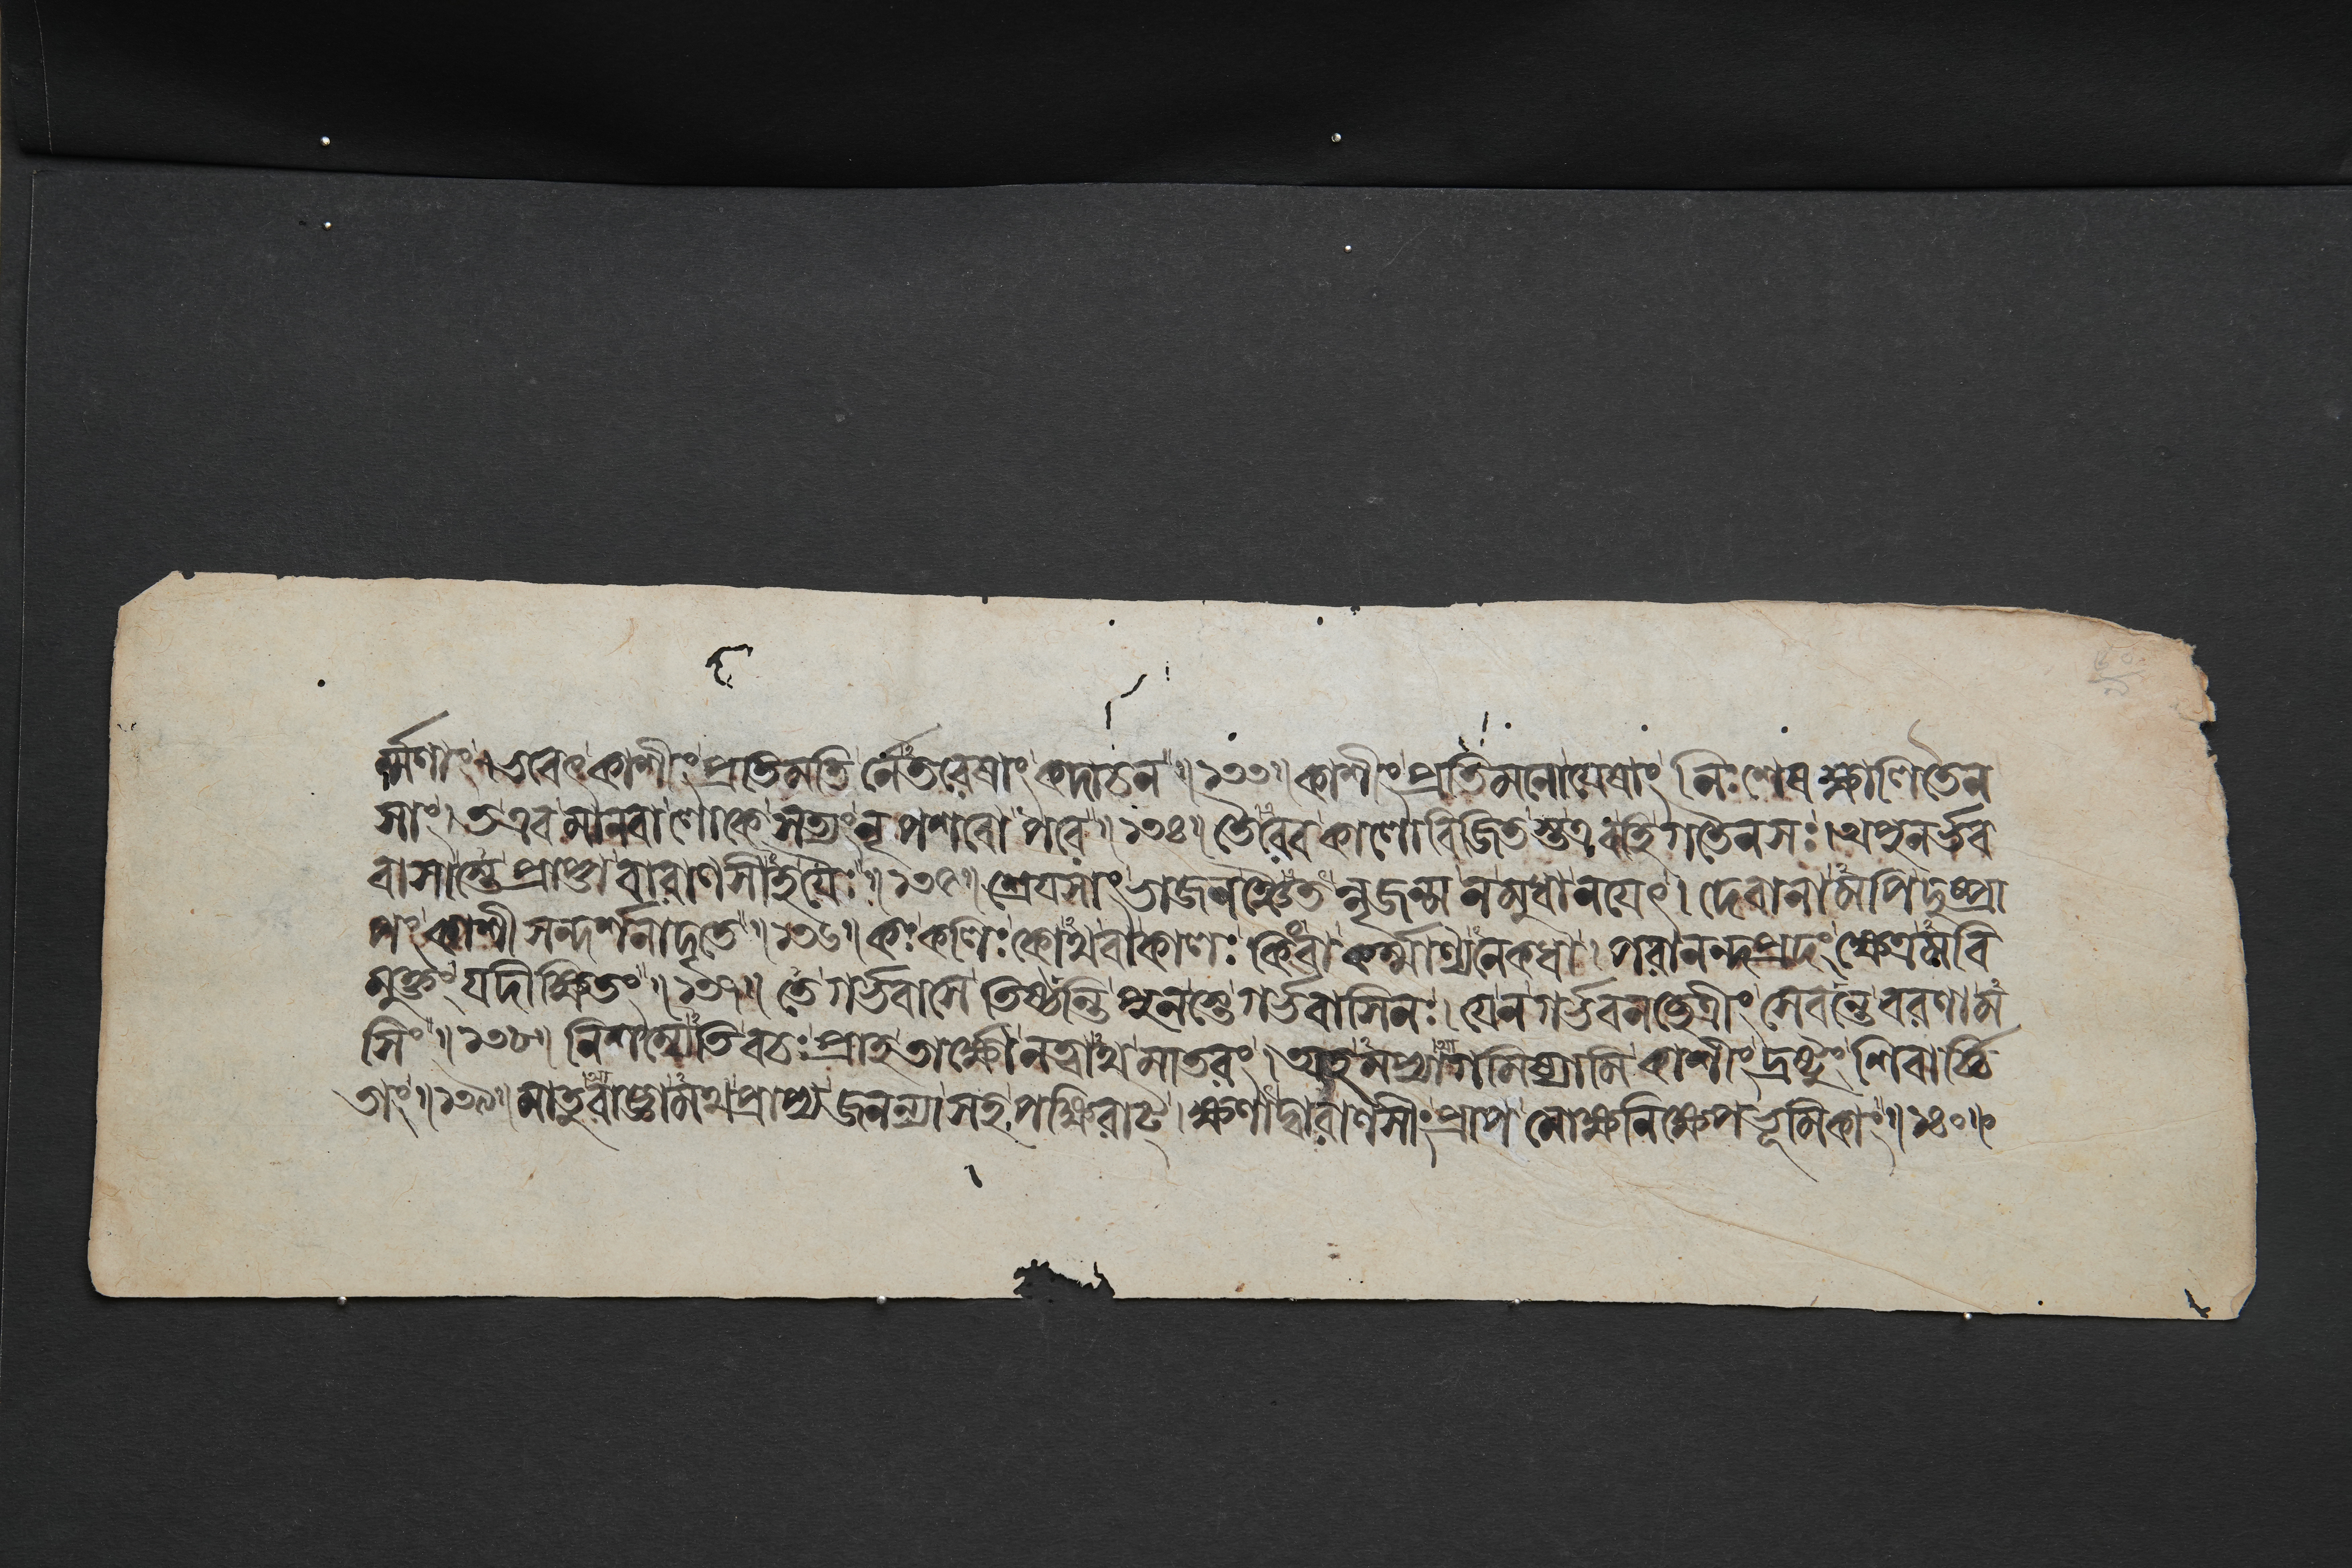 র্ম্মণাং। ভবেৎ কাশীং প্রতিমতি র্নেতরেষাং কদাচন॥১৩৩॥ কাশীং প্রতিমনোযেষাং নিঃশেষক্ষীণিতৈন
সাং। তএব মানবা লোকে সত্যং নৃপশবো পরে॥১৩৪॥ তৈরেব কালো বিজিত স্তএব হি গতৈনসঃ। অপুনর্ভব
বাসাস্তে প্রাপ্তা বারাণসীহ যৈঃ॥১৩৫॥ শ্রেযসাং ভাজনঞ্চৈত ন্নৃজন্ম ন মুধা নযেৎ। দেবানামপি দুষ্প্রা
পং কাশী সন্দর্শনাদৃতে॥১৩৬॥ কঃ কলিঃ কোঽথবা কালঃ কিংবা কর্ম্মাণ্যনেকধা। পরানন্দপ্রদং ক্ষেত্রমবি
মুক্তং যদীক্ষিতং॥১৩৭॥ তে গর্ভবাসে তিষ্ঠন্তি পুনস্তে গর্ভবাসিনঃ। যেন গর্ভবনচ্ছেত্রীং সেবন্তে বরণাম

সিং॥১৩৮॥ নিশম্যেতি বচঃ প্রাহ তার্ক্ষ্যো নত্বাথ মাতরং। অহমপ্যাগমিষ্যামি কাশীং দ্রষ্টুং শিবার্চ্চি
তাং॥১৩৯॥ মাতুরাজ্ঞামথ প্রাপ্য জনন্যা সহ পক্ষিরাট্। ক্ষণাদ্বারাণসীং প্রাপ মোক্ষনিক্ষেপভূমিকাং॥১৪০॥